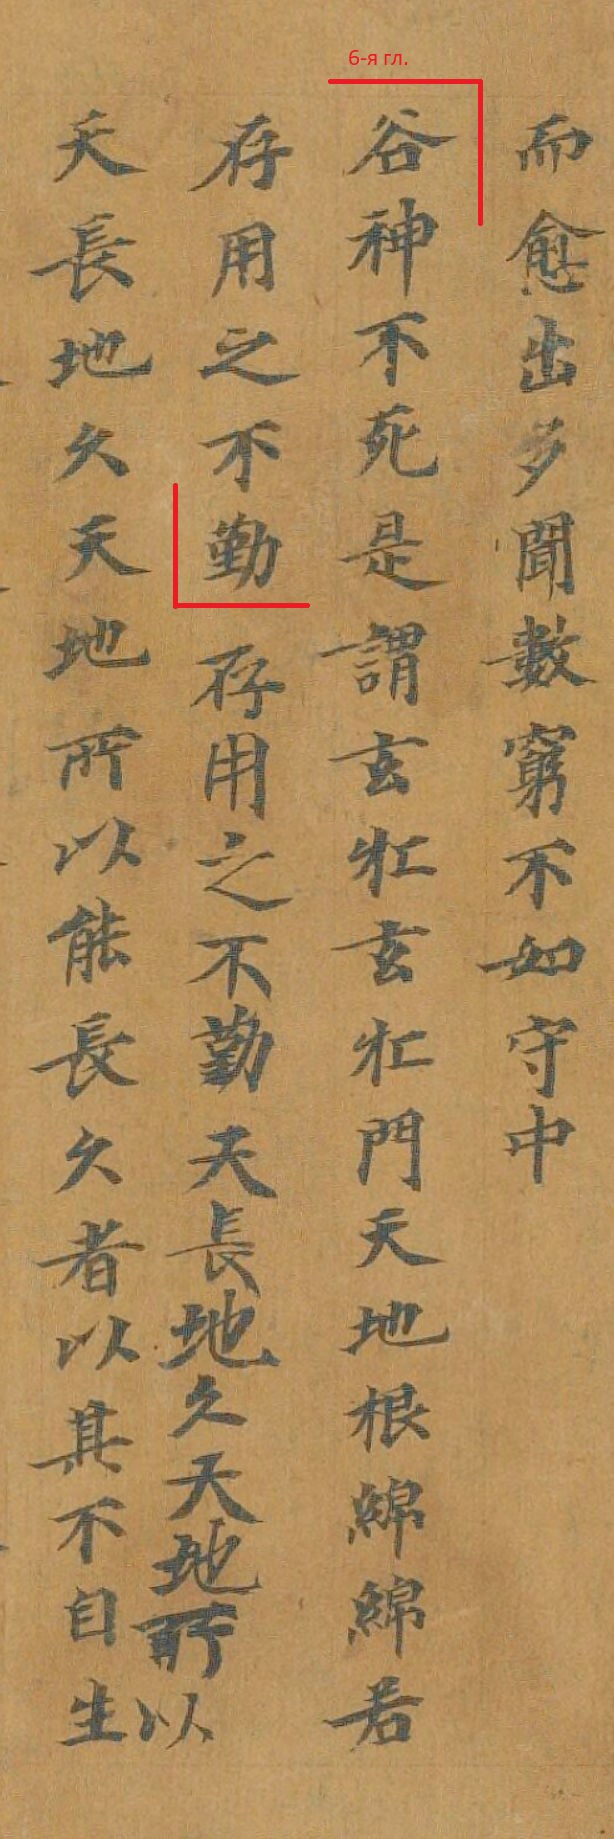 6-я гл.
而愈出多聞數窮不如守中
谷神不死是謂玄牝玄牝門天地根綿綿若
存用之不勤存用之不勤天長地久天地所以
天長地久天地所以能長久者以其不自生